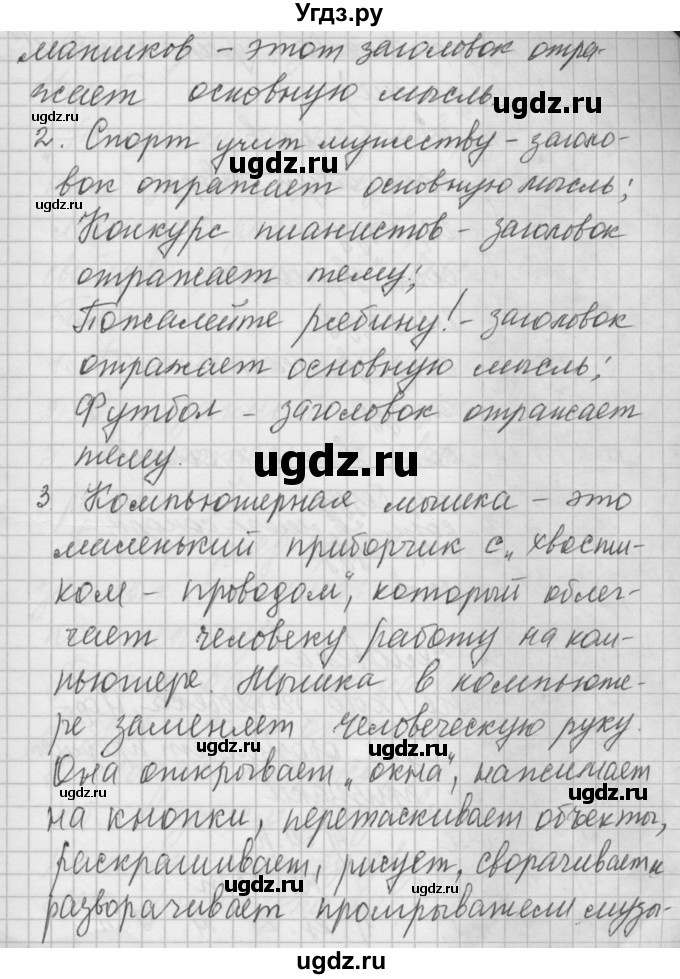 Угдз.ру
маників – этот заголовок отра-
жает основную мысль
2. Спорт учит мужеству – заголо-
вок отражает основную мысль;
Конкурс пианистов – заголовок
отражает тему;
Пожалейте рябину! – заголовок
отражает основную мысль;
Футбол – заголовок отражает
тему.
3 Компьютерная мышка – это
маленький приборчик с „хвости-
ком – проводом", который облег-
чает человеку работу на ком-
пьютере. Мышка в компьюте-
ре заменяет человеческую руку.
Она открывает „окна", нажимает
на кнопки, перетаскивает объекты,
раскрашивает, рисует, сворачивает и
разворачивает проигрыватели музы-
ugdz.ru
ugdz.ru
ugdz.ru
ugdz.ru
ugdz.ru
ugdz.ru
ugdz.ru
ugdz.ru
ugdz.ru
ugdz.ru
ugdz.ru
ugdz.ru
ugdz.ru